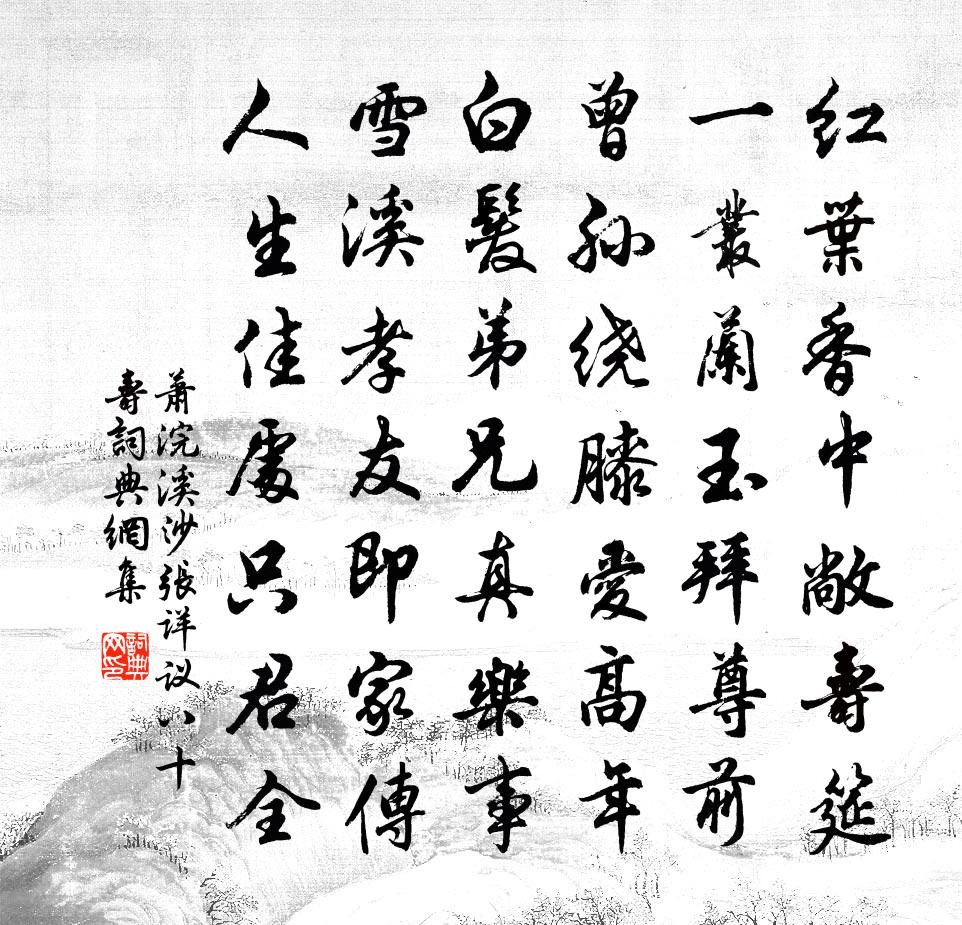 红葉香中敞壽筵
一叢蘭玉拜尊前
曾孙绕膝愛高年
白髮弟兄真樂事
雪溪孝友即家傳
人生佳處只君全
萧浣溪沙張详议八十
壽詞典網集
詞典网印